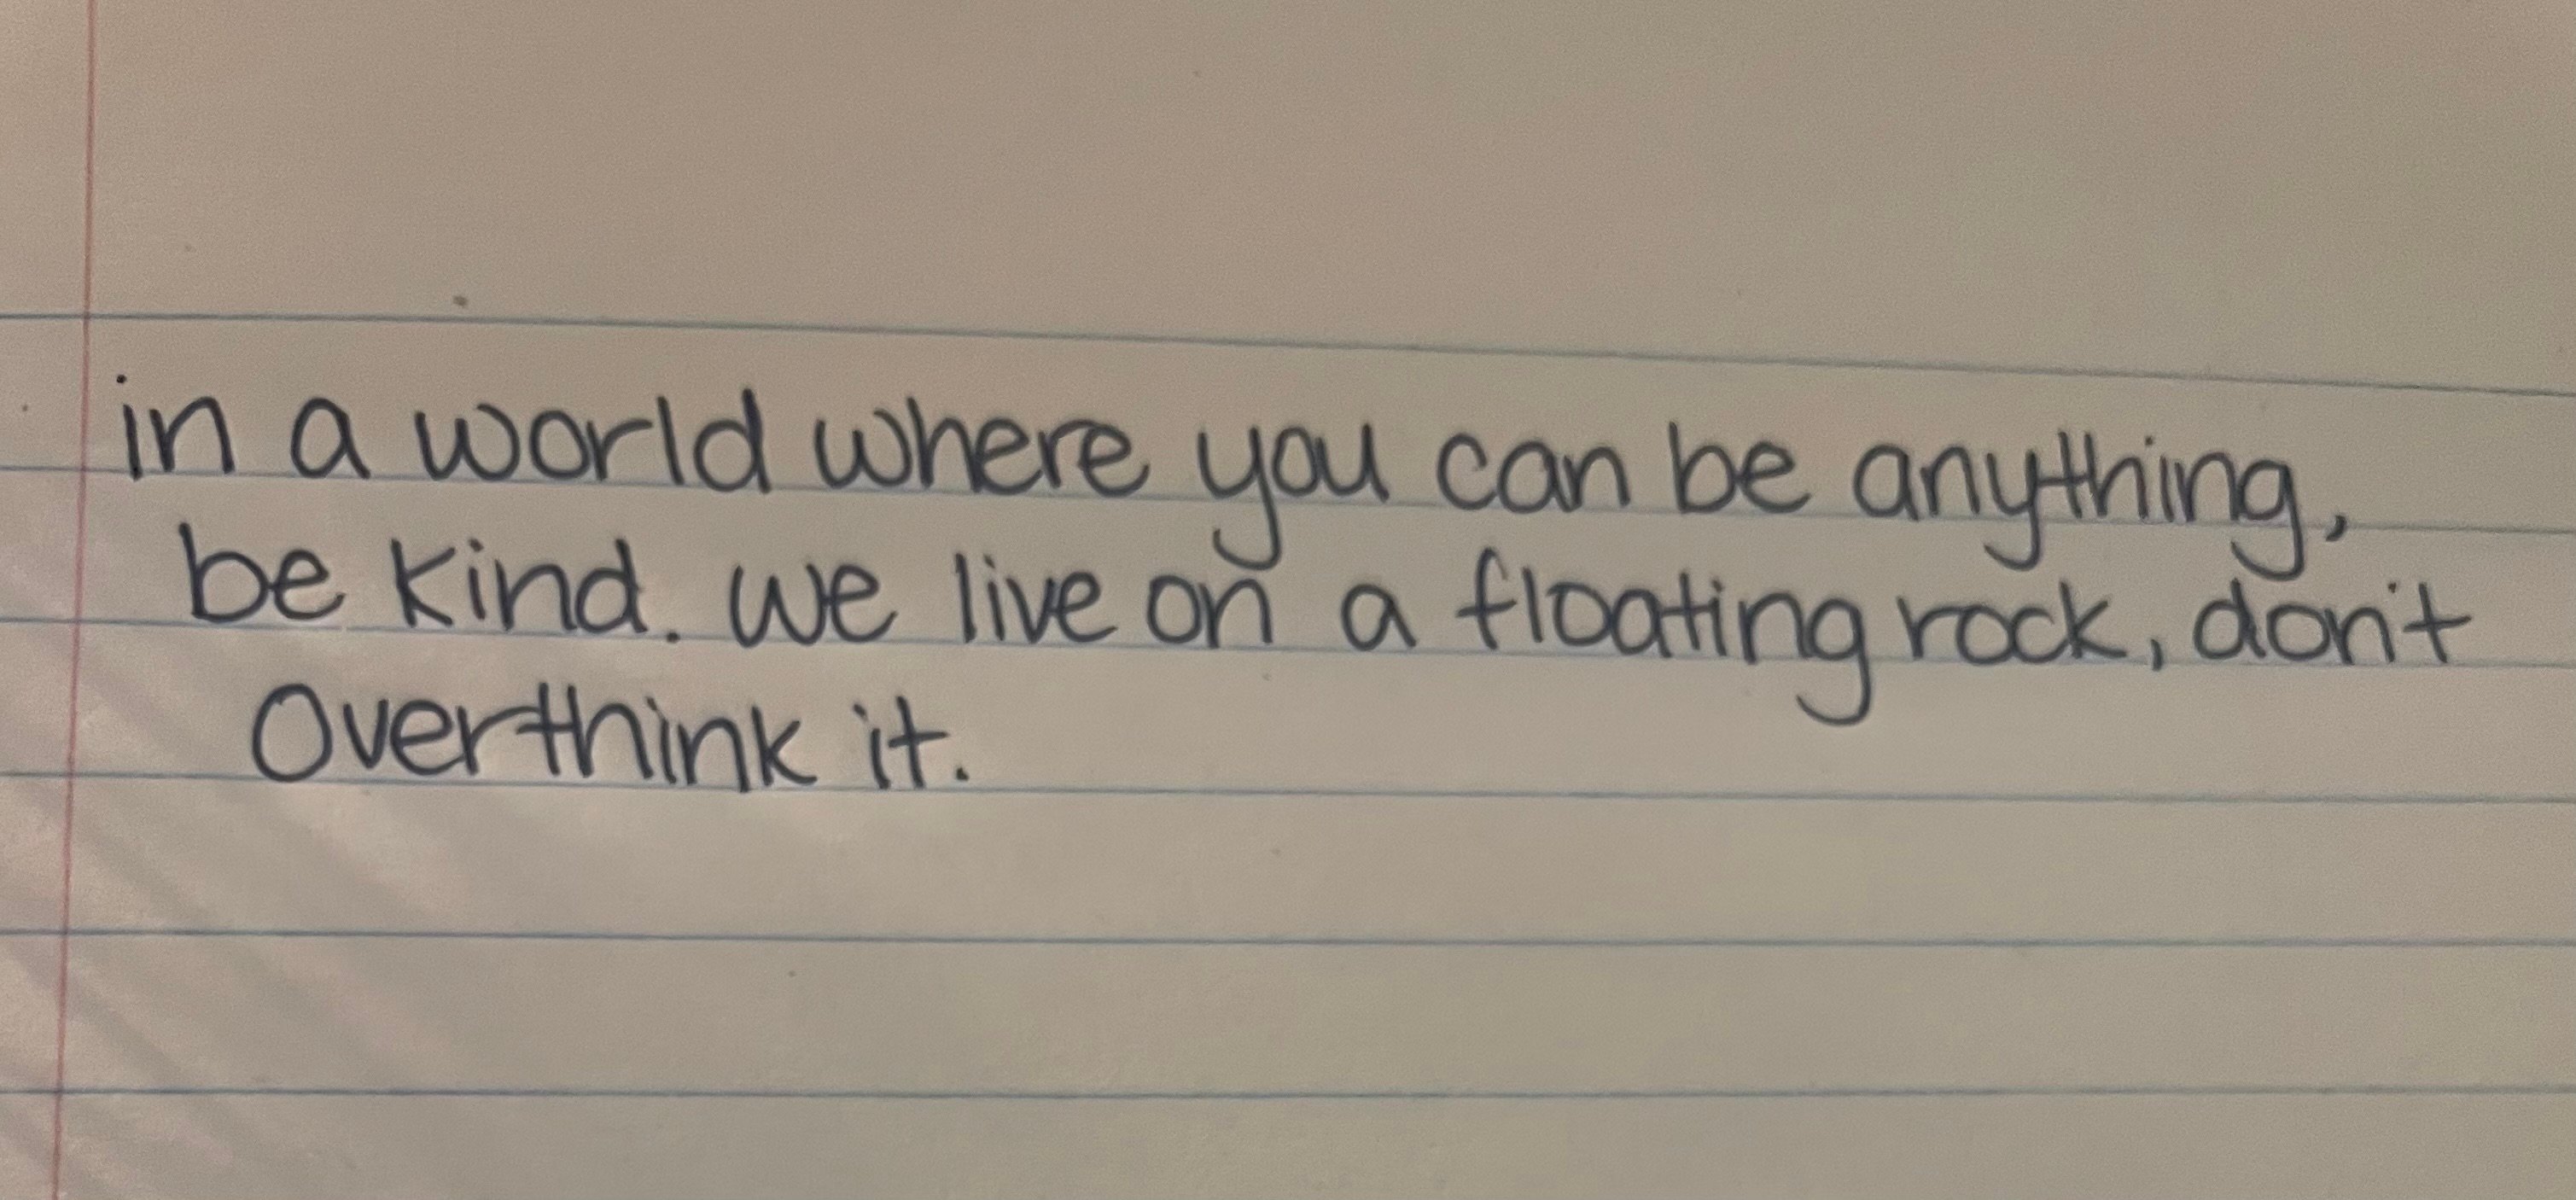 in a world where you can be anything,
be kind. we live on a floating rock, don't
overthink it.